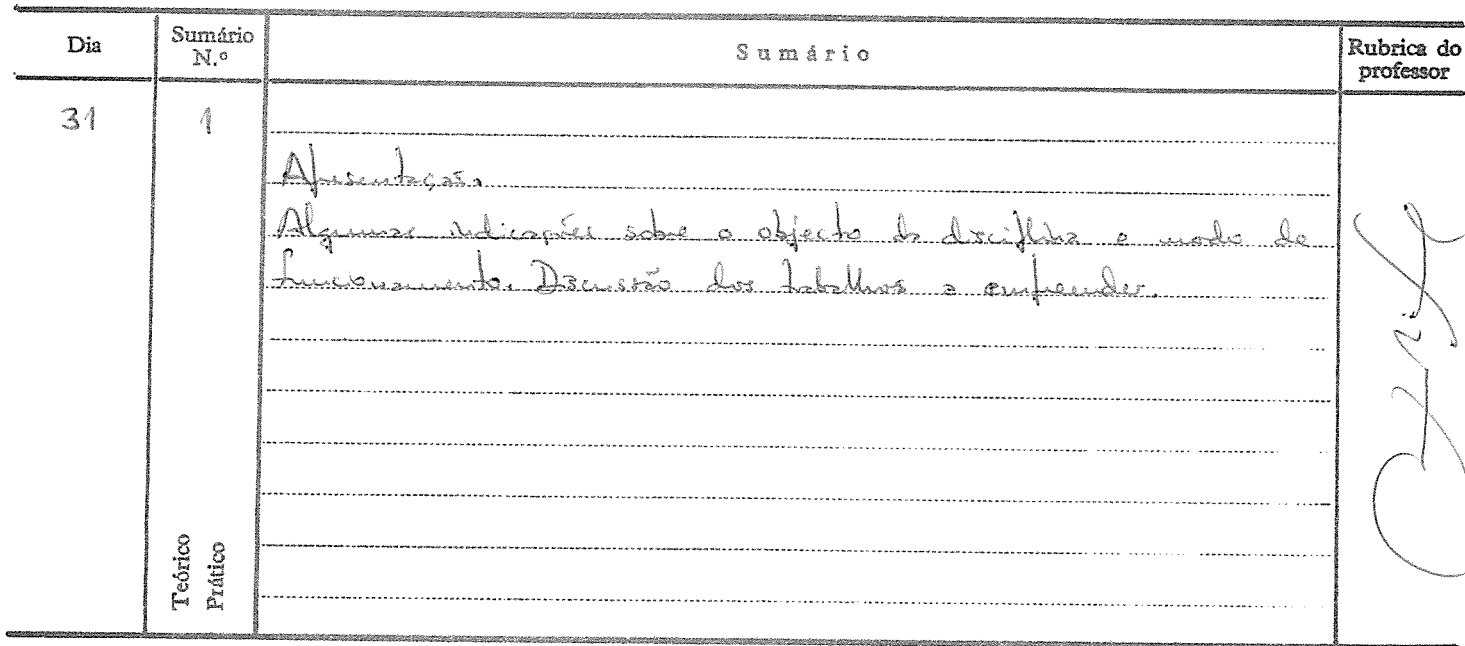 Dia
Sumário N.º
Sumário
Rubrica do professor
31
1
Apresentação.
Algumas indicações sobre o objecto da disciplina e modo de
funcionamento. Discussão dos trabalhos a empreender.
Teórico
Prático